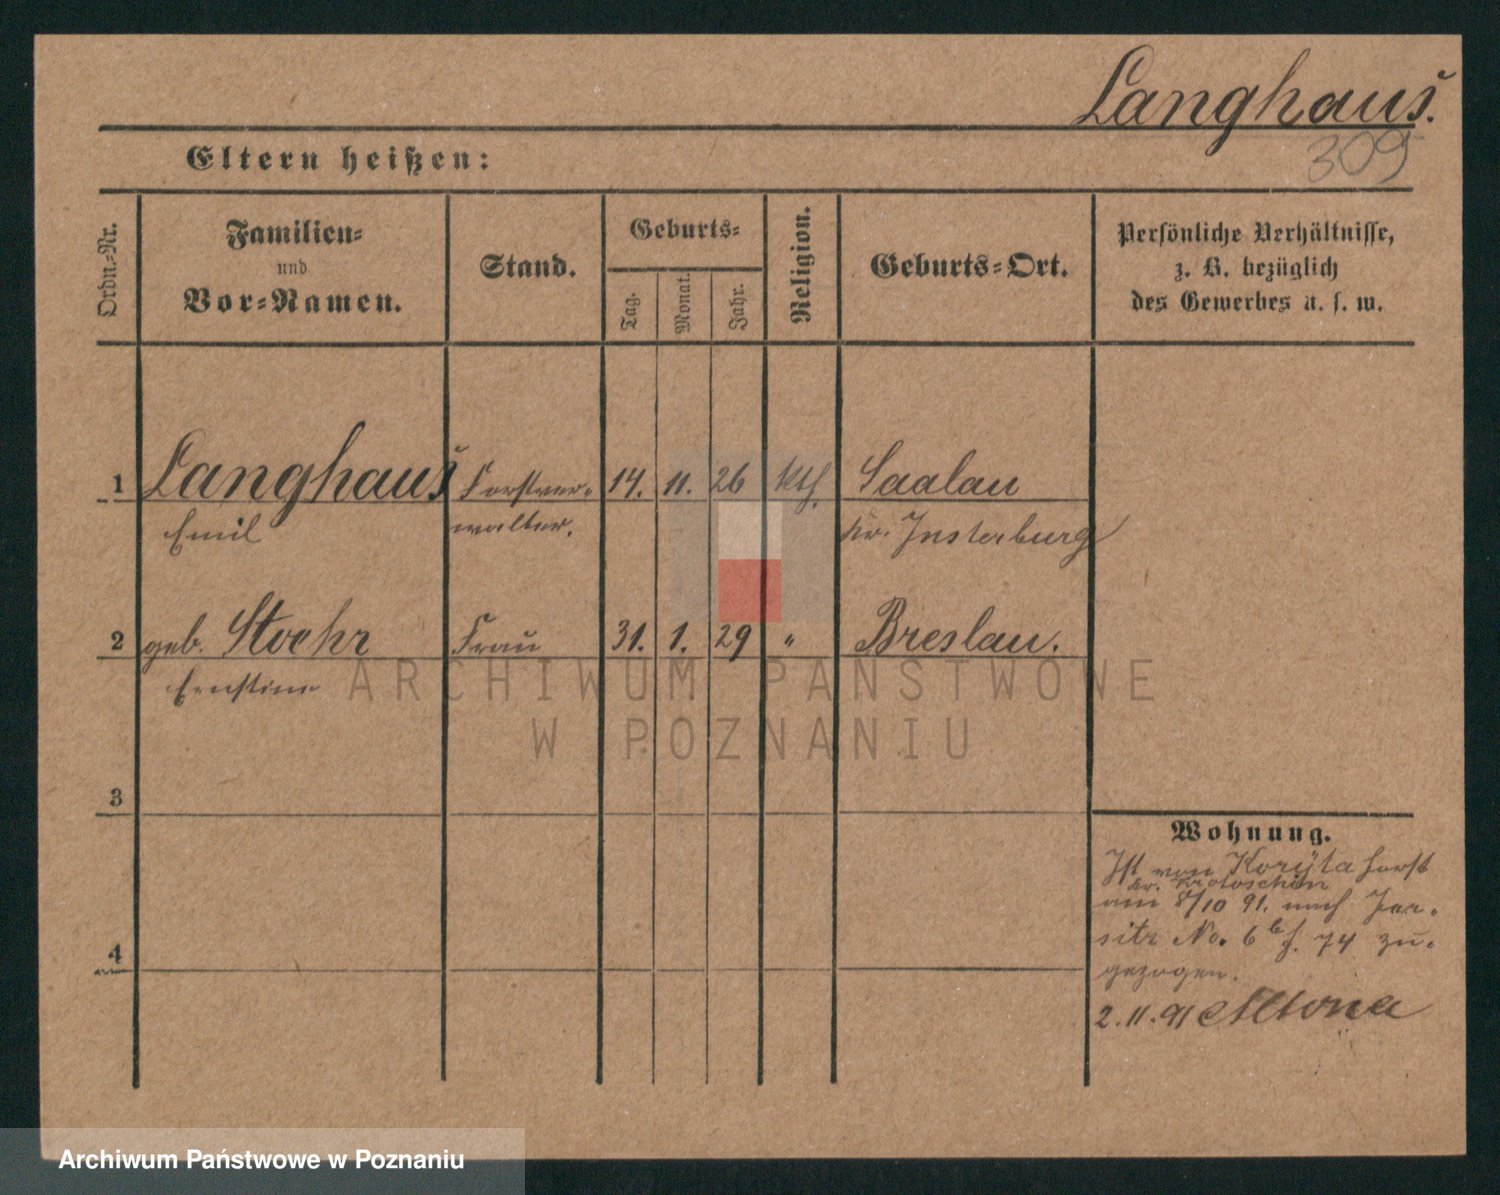 Langhaus.
309
Eltern heißen:
Ordn.-Nr.
Familien-
und
Vor-Namen.
Stand.
Geburts-
Tag.
Monat.
Jahr.
Religion.
Geburts-Ort.
Persönliche Verhältnisse,
z. B. bezüglich
des Gewerbes u. s. w.
1 Langhaus Forstver- 14. 11. 26 kth. Saalau
Emil walter. Kr. Insterburg
2 geb. Stoehr Frau 31. 1. 29 " Breslau.
Ernstine
3
4
Wohnung.
Ist von Koryta Forst
Kr. Krotoschin
am 8/10 91. nach Jer-
sitz No. 6 f. 74 zu-
gezogen.
2.11.91 Altona
ARCHIWUM PAŃSTWOWE
W POZNANIU
Archiwum Państwowe w Poznaniu